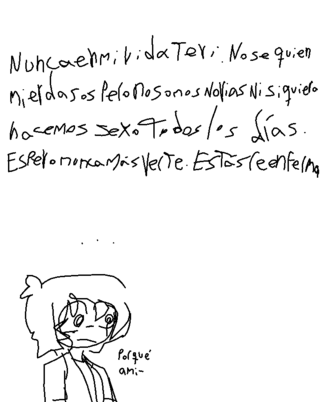 Nunca en mi vida te vi. No se quien
mierda sos pero no somos novias ni siquiera
hacemos sexo todos los días.
Espero nunca más verte. Estás re enferma
. . .
Porqué
ami-